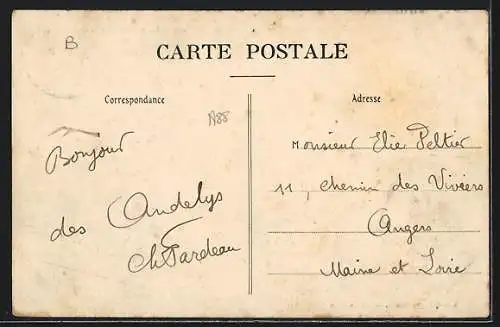 B
CARTE POSTALE
Correspondance
Adresse
A88
Bonjour
des Andelys
Ch Tardeau
Monsieur Elie Peltier
11, chemin des Viviers
Angers
Maine et Loire